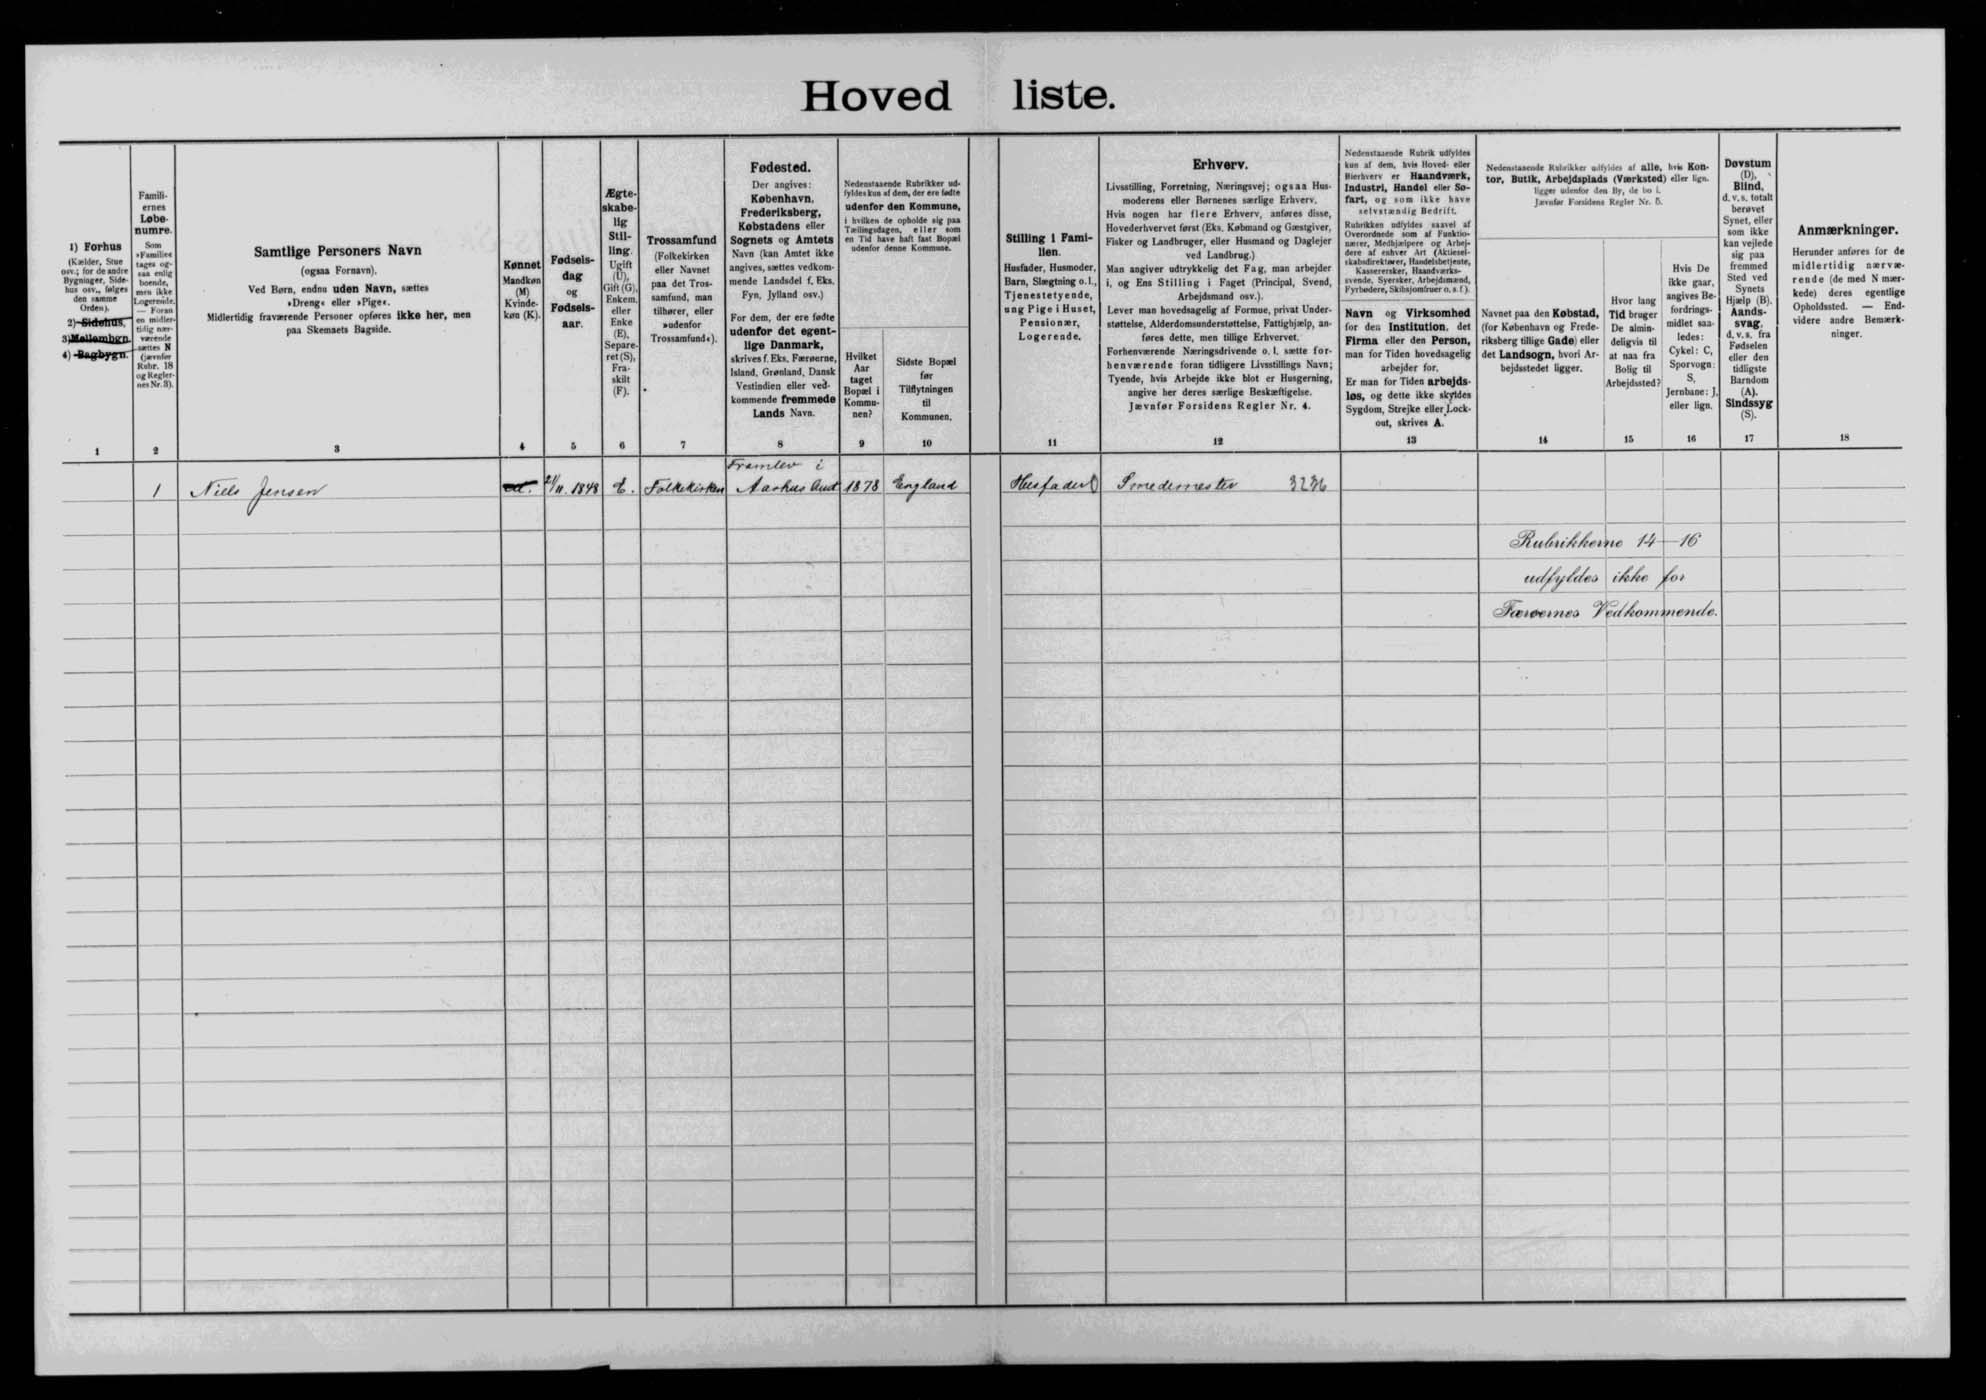 Hoved liste.
1) Forhus
(Kælder, Stue
osv.; for de andre
Bygninger, Side-
hus osv., følges
den samme
Orden).
2) Sidehus,
3) Mellembgn.
4) Bagbygn.
1
Famili-
ernes
Løbe-
numre.
Som
»Familie«
tages og-
saa enlig
boende,
men ikke
Logerende.
— Foran
en midler-
tidig nær-
værende
sættes N
(jævnfør
Rubr. 18
og Regler-
nes Nr. 3).
2
Samtlige Personers Navn
(ogsaa Fornavn).
Ved Børn, endnu uden Navn, sættes
»Dreng« eller »Pige«.
Midlertidig fraværende Personer opføres ikke her, men
paa Skemaets Bagside.
3
Kønnet
Mandkøn
(M)
Kvinde-
køn (K).
4
Fødsels-
dag
og
Fødsels-
aar.
5
Ægte-
skabe-
lig
Stil-
ling.
Ugift
(U),
Gift (G),
Enkem.
eller
Enke
(E),
Separe-
ret (S),
Fra-
skilt
(F).
6
Trossamfund
(Folkekirken
eller Navnet
paa det Tros-
samfund, man
tilhører, eller
»udenfor
Trossamfund«).
7
Fødested.
Der angives:
København,
Frederiksberg,
Købstadens eller
Sognets og Amtets
Navn (kan Amtet ikke
angives, sættes vedkom-
mende Landsdel f. Eks.
Fyn, Jylland osv.)
For dem, der ere fødte
udenfor det egent-
lige Danmark,
skrives f. Eks. Færøerne,
Island, Grønland, Dansk
Vestindien eller ved-
kommende fremmede
Lands Navn.
8
Nedenstaaende Rubrikker ud-
fyldes kun af dem, der ere fødte
udenfor den Kommune,
i hvilken de opholde sig paa
Tællingsdagen, eller som
en Tid have haft fast Bopæl
udenfor denne Kommune.
Hvilket
Aar
taget
Bopæl i
Kommu-
nen?
9
Sidste Bopæl
før
Tilflytningen
til
Kommunen.
10
Stilling i Fami-
lien.
Husfader, Husmoder,
Barn, Slægtning o. l.,
Tjenestetyende,
ung Pige i Huset,
Pensionær,
Logerende.
11
Erhverv.
Livsstilling, Forretning, Næringsvej; ogsaa Hus-
moderens eller Børnenes særlige Erhverv.
Hvis nogen har flere Erhverv, anføres disse,
Hovederhvervet først (Eks. Købmand og Gæstgiver,
Fisker og Landbruger, eller Husmand og Daglejer
ved Landbrug.)
Man angiver udtrykkelig det Fag, man arbejder
i, og Ens Stilling i Faget (Principal, Svend,
Arbejdsmand osv.).
Lever man hovedsagelig af Formue, privat Under-
støttelse, Alderdomsunderstøttelse, Fattighjælp, an-
føres dette, men tillige Erhvervet.
Forhenværende Næringsdrivende o. l. sætte for-
henværende foran tidligere Livsstillings Navn;
Tyende, hvis Arbejde ikke blot er Husgerning,
angive her deres særlige Beskæftigelse.
Jævnfør Forsidens Regler Nr. 4.
12
Nedenstaaende Rubrik udfyldes
kun af dem, hvis Hoved- eller
Bierhverv er Haandværk,
Industri, Handel eller Sø-
fart, og som ikke have
selvstændig Bedrift.
Rubrikken udfyldes saavel af
Overordnede som af Funktio-
nærer, Medhjælpere og Arbej-
dere af enhver Art (Aktiesel-
skabsdirektører, Handelsbetjente,
Kassererske, Haandværks-
svende, Syersker, Arbejdsmænd,
Fyrbødere, Skibsjomfruer o. s. f.).
Navn og Virksomhed
for den Institution, det
Firma eller den Person,
man for Tiden hovedsagelig
arbejder for.
Er man for Tiden arbejds-
løs, og dette ikke skyldes
Sygdom, Strejke eller Lock-
out, skrives A.
13
Nedenstaaende Rubrikker udfyldes af alle, hvis Kon-
tor, Butik, Arbejdsplads (Værksted) eller lign.
ligger udenfor den By, de bo i.
Jævnfør Forsidens Regler Nr. 5.
Navnet paa den Købstad,
(for København og Frede-
riksberg tillige Gade) eller
det Landsogn, hvori Ar-
bejdsstedet ligger.
14
Hvor lang
Tid bruger
De almin-
deligvis til
at naa fra
Bolig til
Arbejdssted?
15
Hvis De
ikke gaar,
angives Be-
fordrings-
midlet saa-
ledes:
Cykel: C,
Sporvogn:
S,
Jernbane: J,
eller lign.
16
Døvstum
(D),
Blind,
d. v. s. totalt
berøvet
Synet, eller
som ikke
kan vejlede
sig paa
fremmed
Sted ved
Synets
Hjælp (B).
Aands-
svag,
d. v. s. fra
Fødselen
eller den
tidligste
Barndom
(A).
Sindssyg
(S).
17
Anmærkninger.
Herunder anføres for de
midlertidig nærvæ-
rende (de med N mær-
kede) deres egentlige
Opholdssted. — End-
videre andre Bemærk-
ninger.
18
Framlev i
1 Niels Jensen 21/11. 1848 E. Folkekirken Aarhus Amt 1878 England Husfader Smedemester 3236
Rubrikkerne 14-16
udfyldes ikke for
Færøernes Vedkommende.